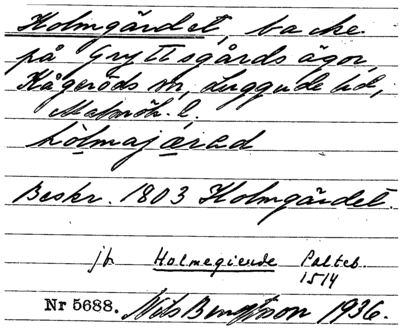 Holmgärdet, backe
på Gryttsgårds ägor,
Kågeröds sn, Luggude hd,
Malmöh. l.
hòlmajæred
Beskr. 1803 Holmgärdet.
jfr Holmegierde Palteb.
1514
Nr 5688. Nils Bengtsson 1936.